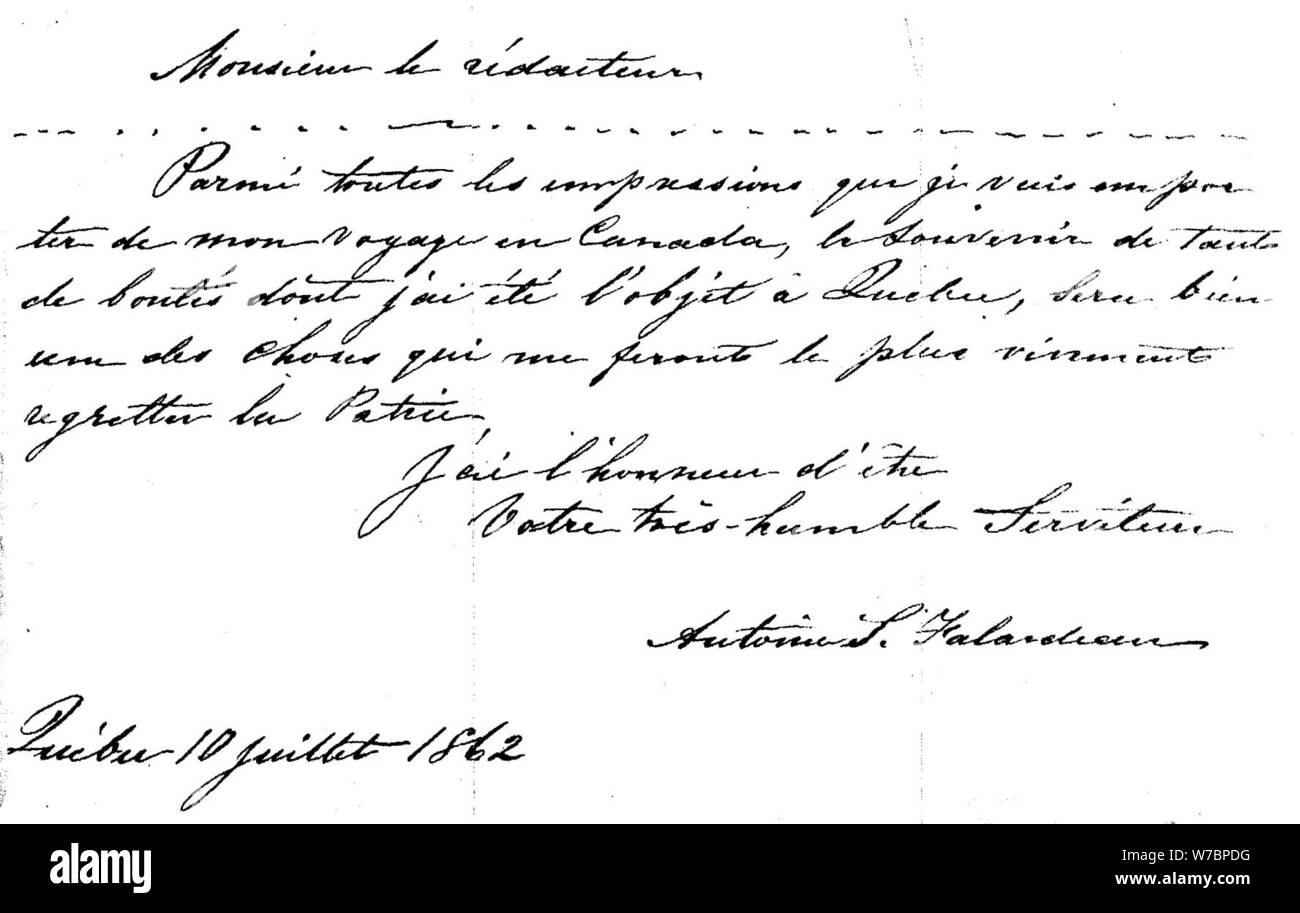 Monsieur le rédacteur
Parmi toutes les impressions que je vais empor
ter de mon voyage en Canada, le souvenir de tant
de bontés dont j'ai été l'objet à Québec, sera bien
une des choses qui me feront le plus vivement
regretter la Patrie.
J'ai l'honneur d'être
Votre très-humble Serviteur
Antoine S. Falardeau
Québec 10 juillet 1862
alamy
Image ID: W7BPDG
www.alamy.com